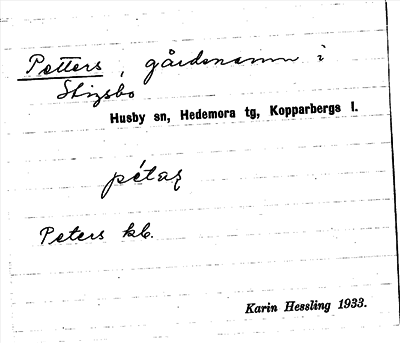 Petters, gårdsnamn i
Stigsbo
Husby sn, Hedemora tg, Kopparbergs l.
pétaʂ
Peters kb.
Karin Hessling 1933.